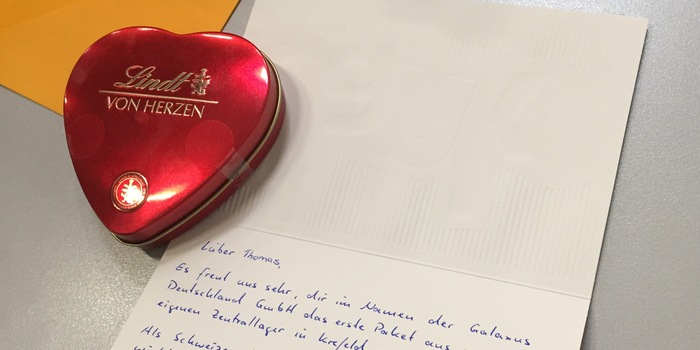 Lindt
VON HERZEN
Lieber Thomas,
Es freut uns sehr, dir im Namen der Galaxus
Deutschland GmbH das erste Paket aus
eigenen Zentrallager in Krefeld
Als Schweize